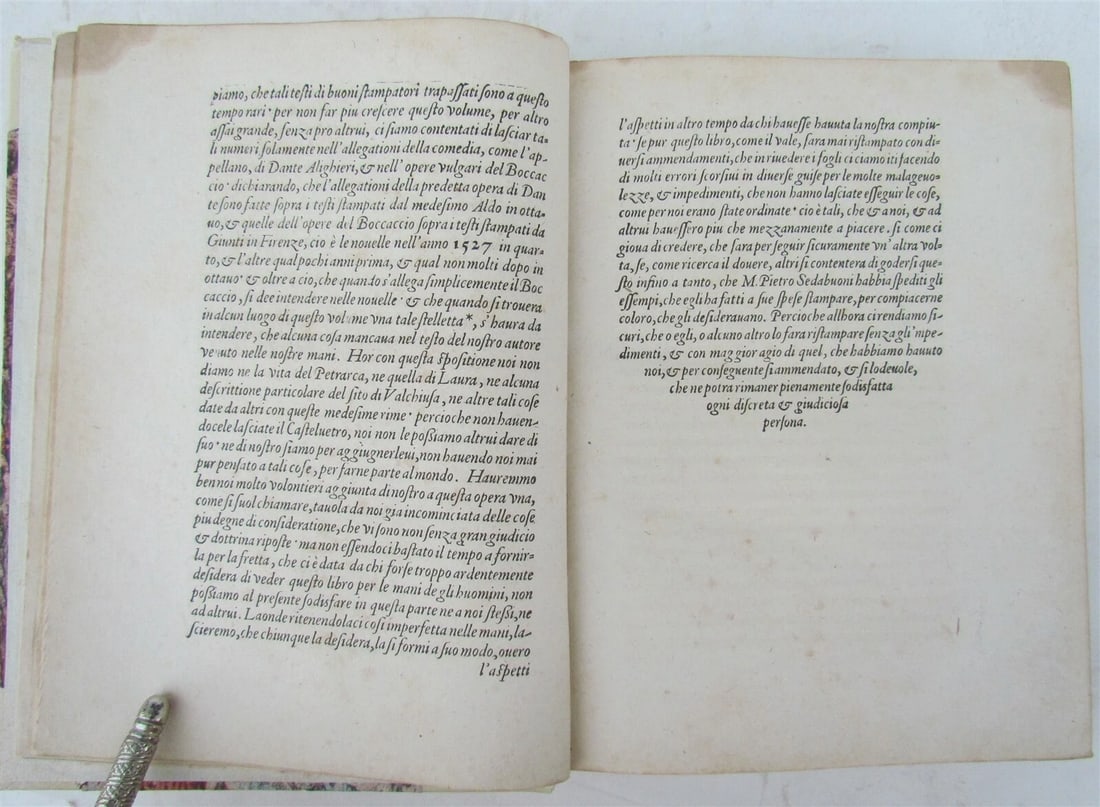 piamo, che tali testi di buoni stampatori trapassati sono a questo
tempo rari· per non far piu crescere questo volume, per altro
assai grande, senza pro altrui, ci siamo contentati di lasciar ta-
li numeri solamente nell'allegationi della comedia, come l'ap-
pellano, di Dante Alighieri, & nell'opere vulgari del Boccac
cio· dichiarando, che l'allegationi della predetta opera di Dan
te sono fatte sopra i testi stampati dal medesimo Aldo in otta-
uo, & quelle dell'opere del Boccaccio sopra i testi stampati da
Giunti in Firenze, cio è le nouelle nell'anno 1527 in quar-
to, & l'altre qual pochi anni prima, & qual non molti dopo in
ottauo· & oltre a cio, che quando s'allega simplicemente il Boc
caccio, si dee intendere nelle nouelle· & che quando si trouera
in alcun luogo di questo volume vna tale stelletta*, s'haura da
intendere, che alcuna cosa mancaua nel testo del nostro autore
venuto nelle nostre mani. Hor con questa spositione noi non
diamo ne la vita del Petrarca, ne quella di Laura, ne alcuna
descrittione particolare del sito di Valchiusa, ne altre tali cose
date da altri con queste medesime rime· percioche non hauen-
docele lasciate il Casteluetro, noi non le possiamo altrui dare di
suo· ne di nostro siamo per aggiugnerleui, non hauendo noi mai
pur pensato a tali cose, per farne parte al mondo. Hauremmo
ben noi molto volontieri aggiunta di nostro a questa opera vna,
come si suol chiamare, tauola da noi gia incominciata delle cose
piu degne di consideratione, che vi sono non senza gran giudicio
& dottrina riposte· ma non essendoci bastato il tempo a fornir-
la per la fretta, che ci è data da chi forse troppo ardentemente
desidera di veder questo libro per le mani de gli huomini, non
possiamo al presente sodisfare in questa parte ne a noi stessi, ne
ad altrui. Laonde ritenendolaci cosi imperfetta nelle mani, la-
scieremo, che chiunque la desidera, la si formi a suo modo, ouero
l'aspetti
l'aspetti in altro tempo da chi hauesse hauuta la nostra compiu-
ta· se pur questo libro, come il vale, sara mai ristampato con di-
uersi ammendamenti, che in riuedere i fogli ci siamo iti facendo
di molti errori scorsiui in diuerse guise per le molte malageuo-
lezze, & impedimenti, che non hanno lasciate esseguir le cose,
come per noi erano state ordinate· cio è tali, che & a noi, & ad
altrui haussero piu che mezzanamente a piacere. Si come ci
gioua di credere, che sara per seguir sicuramente vn'altra vol-
ta, se, come ricerca il douere, altri si contentera di godersi que-
sto infino a tanto, che M. Pietro Sedabuoni habbia spediti gli
essempi, che egli ha fatti a sue spese stampare, per compiacerne
coloro, che gli desiderauano. Percioche allhora ci rendiamo si-
curi, che o egli, o alcuno altro lo fara ristampare senza gl'impe-
dimenti, & con maggior agio di quel, che habbiamo hauuto
noi, & per conseguente si ammendato, & si lodeuole,
che ne potra rimaner pienamente sodisfatta
ogni discreta & giudiciosa
persona.